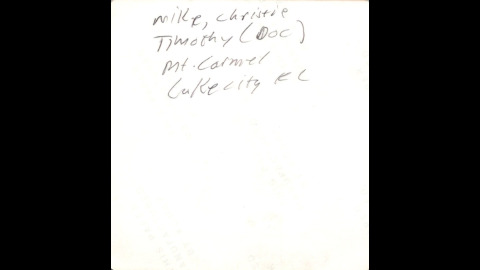 Mike, Christie
Timothy (DOC)
Mt. Carmel
Lake City FL